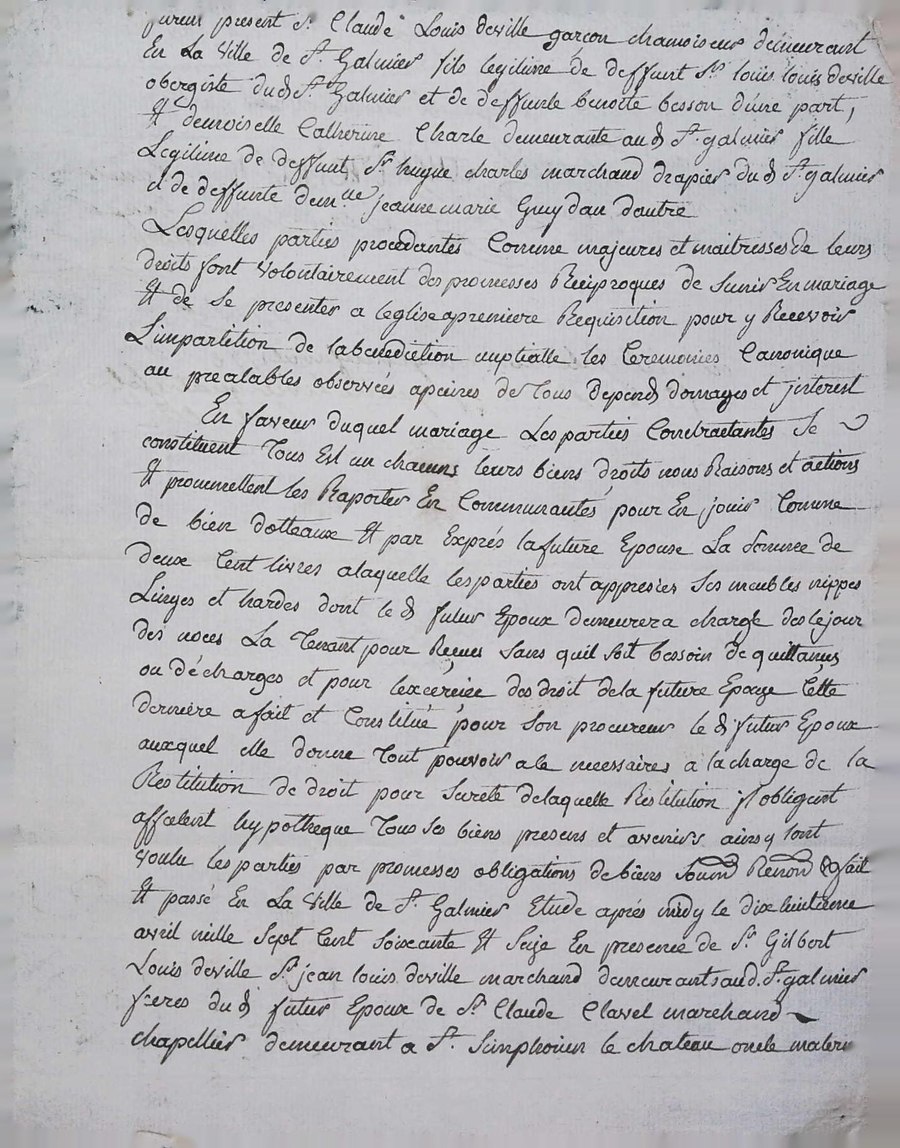 furent present Sr. Claude Louis deville garçon chamoiseur demeurant
En La Ville de St. Galmier fils legitime de deffunt Sr. louis louis deville
obergiste dud St. Galmier et de deffunte benoite besson d'une part,
Et demoiselle Catherine Charle demeurante aud St. galmier fille
Legitime de deffunt Sr. hugue charles marchand drapier dud St. galmier
et de deffunte demlle jeanne marie Guydau dautre
Lesquelles parties procedantes Comme majeures et maitresses de leurs
droits font volontairement des promesses Reciproques de s'unir En mariage
Et de Se presenter a leglise apremiere Requisition pour y Recevoir
L'impartition de la benediction nuptialle les Ceremonies Canonique
au prealables observées apeines de tous depend domages et jnterest
En faveur duquel mariage Les parties Contractantes Se
constituent Tous Est un chacuns leurs biens droits noms Raisons et actions
Et promettent les Raporter En Communautés pour En jouir Comme
de bien dotteaux Et par Exprés la future Epouse La Somme de
deux Cent livres alaquelle les parties ont appresies Ses meubles nippes
Linges et hardes dont led futur Epoux demeurera chargé des le jour
des noces La Tenant pour Recues Sans quil soit besoin de quittances
ou décharges et pour lexcercice des droit de la future Epouze Cette
derniere a fait et Constitué pour Son procureur led futur Epoux
auxquel elle donne Tout pouvoir a le necessaires a la charge de la
Restitution de droit pour Sureté delaquelle Restitution jl obligent
affectent hypotheque Tous Ses biens presens et avenirs ainsy lont
voulu les parties par promesses obligations de biens Soumd Renond &. fait
Et passé En La Ville de St. Galmier Etude aprés midy le dixhuitieme
avril mille Sept Cent Soixante Et Seize En presence de Sr. Gilbert
Louis deville Sr. jean louis deville marchand demeurant aud. St. galmier
freres dud futur Epoux de Sr. Claude Clavel marchand
chapellier demeurant a St. Simphorien le chateau oncle matern